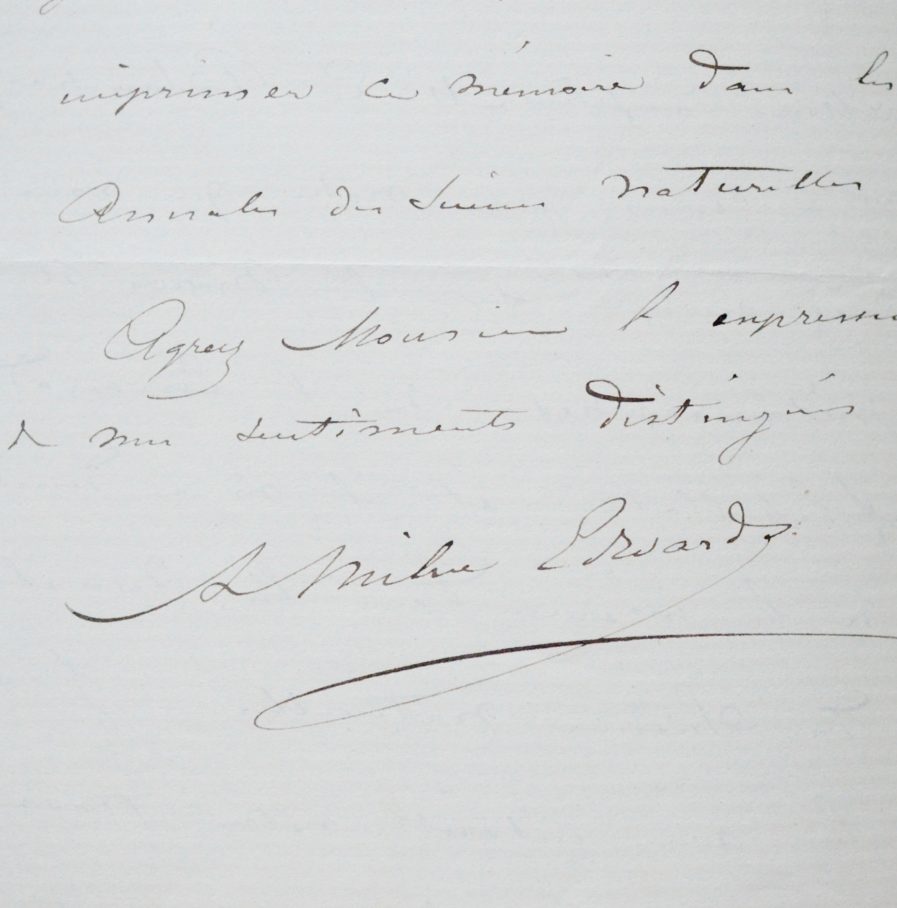 imprimer ce mémoire dans les
Annales des Sciences naturelles
Agreez Monsieur l'expression
de mes sentiments distingués
A Milne Edwards